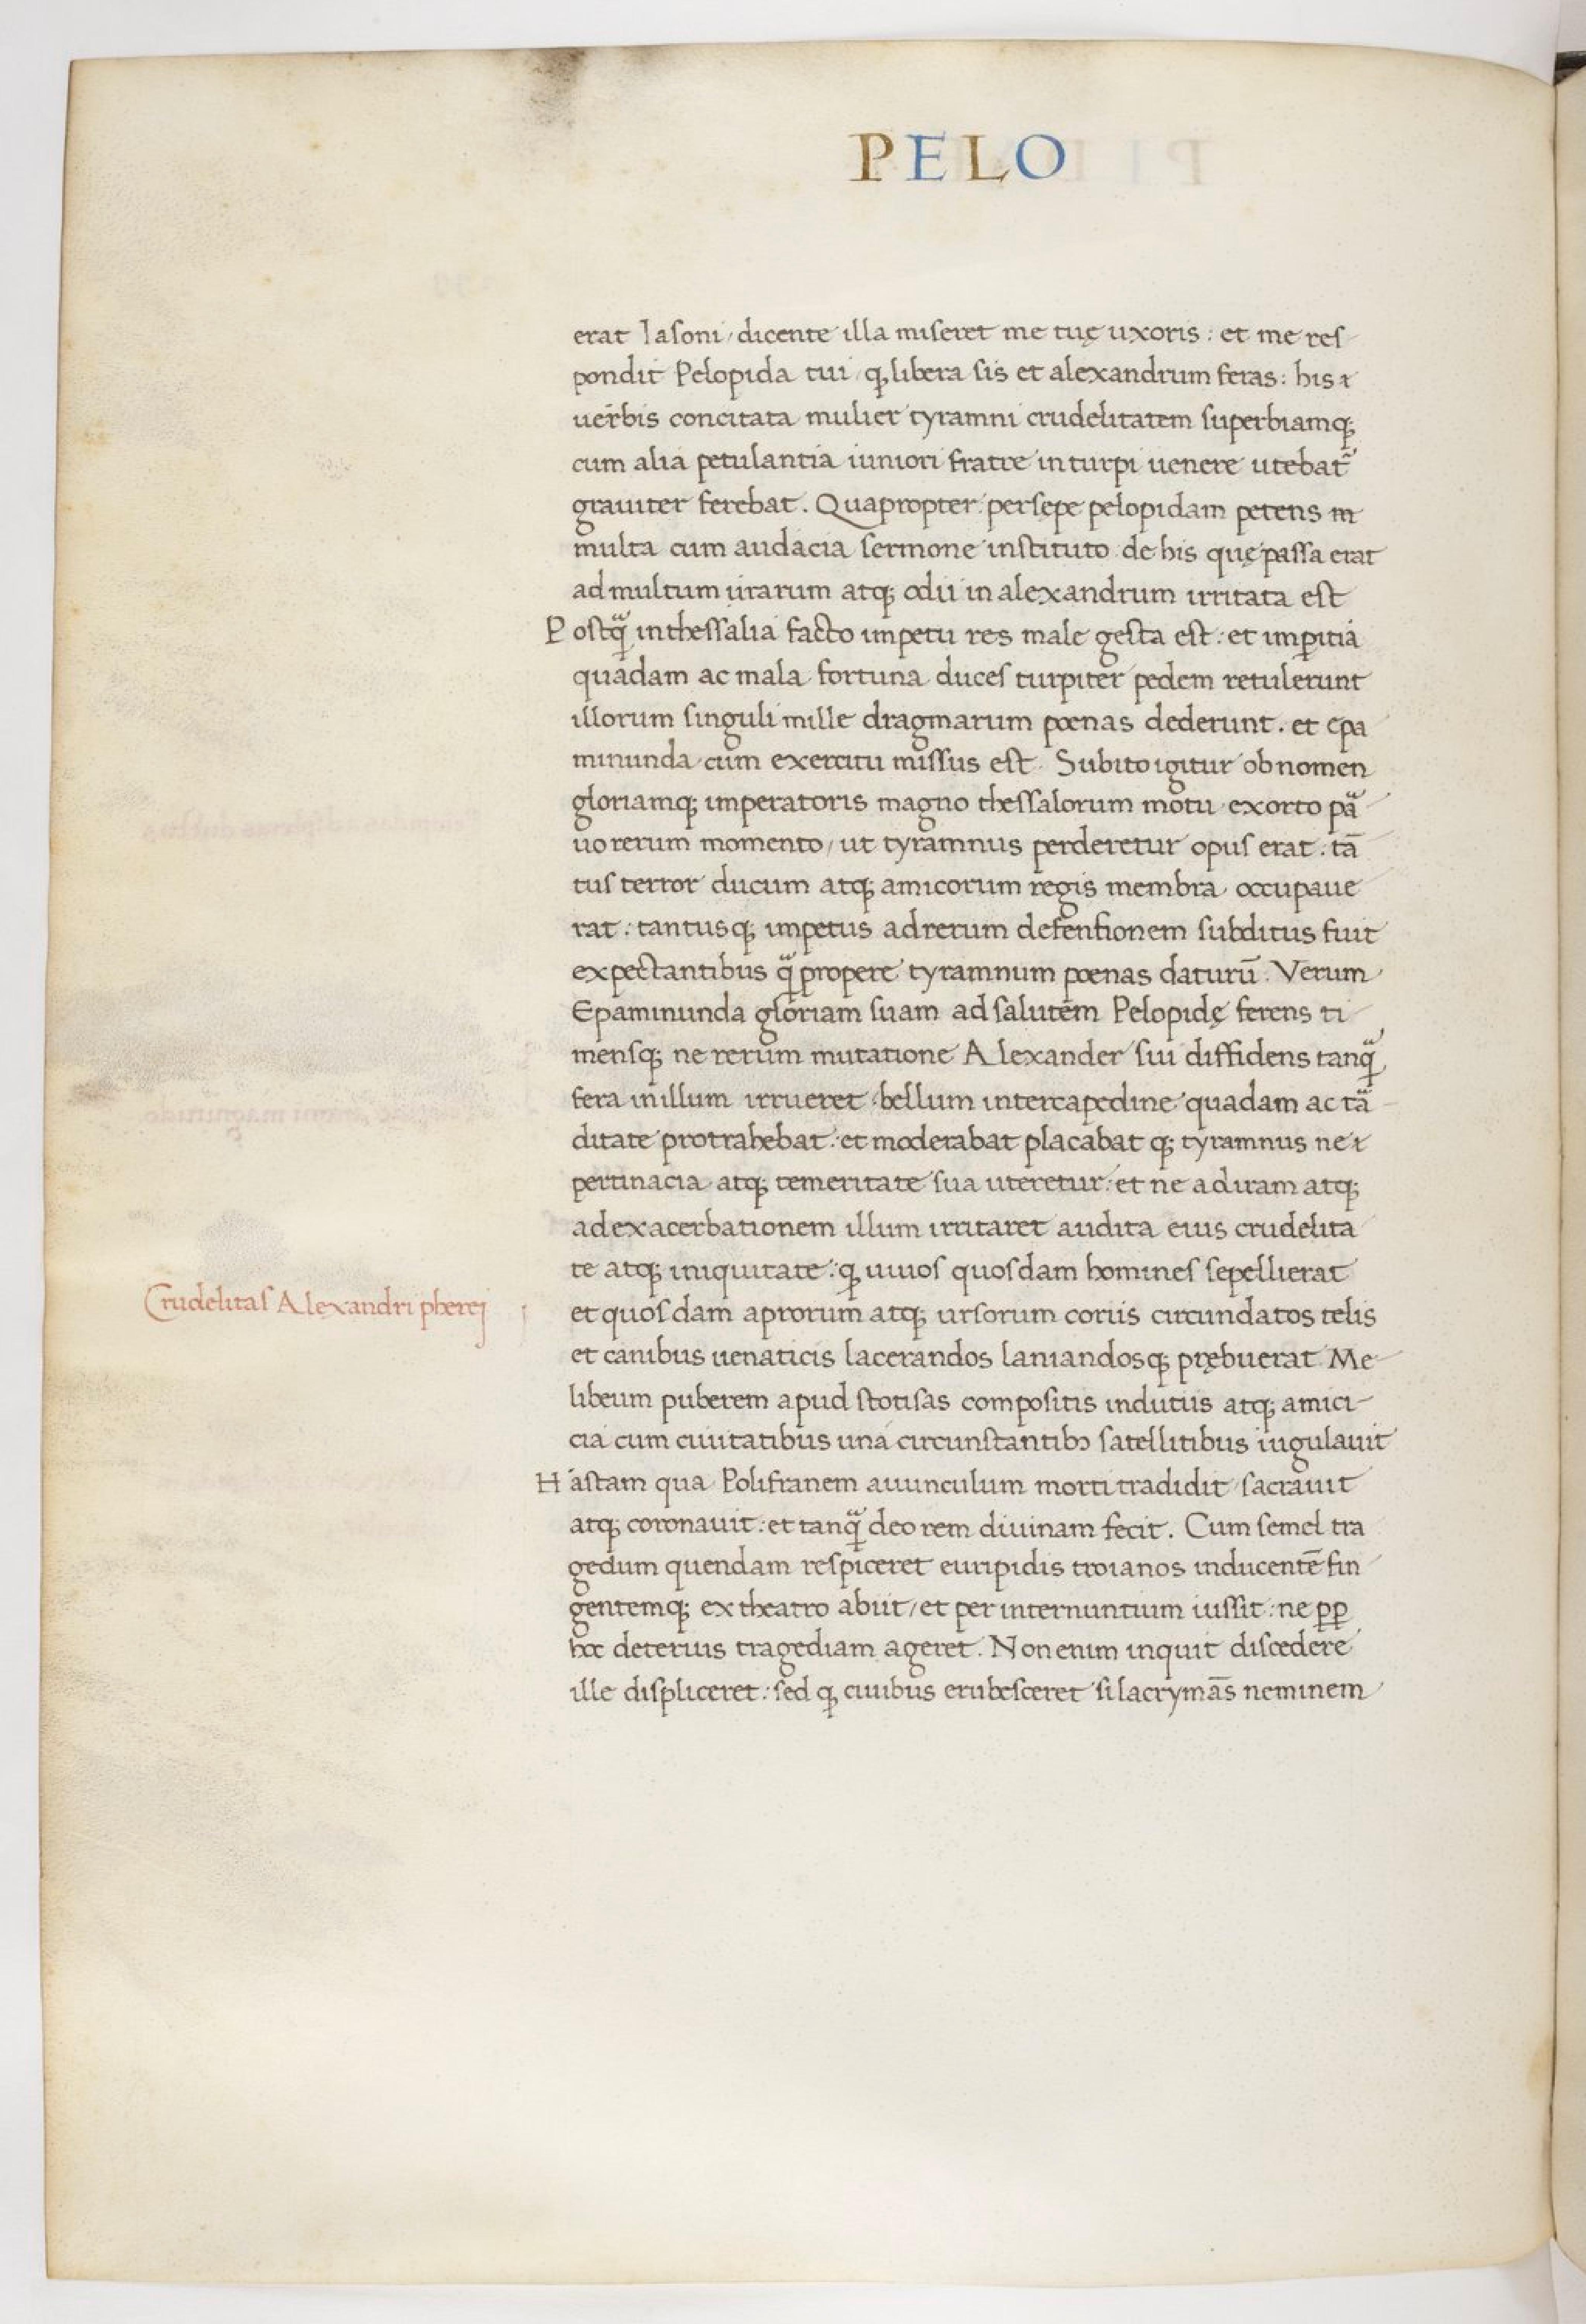 PELO
erat Iasoni, dicente illa miseret me tuę uxoris: et me res
pondit Pelopida tui, ꝙ libera sis et alexandrum feras: his
uerbis concitata mulier tyramni crudelitatem superbiamq;
cum alia petulantia iuniori fratre in turpi uenere utebat᷑
grauiter ferebat. Quapropter persępe pelopidam petens in
multa cum audacia sermone instituto de his quę passa erat
ad multum irarum atq; odii in alexandrum irritata est
Postq̃ in thessalia facto impetu res male gesta est: et imꝑitia
quadam ac mala fortuna duces turpiter pedem retulerunt
illorum singuli mille dragmarum poenas dederunt. et epa
minunda cum exercitu missus est. Subito igitur ob nomen
gloriamq; imperatoris magno thessalorum motu exorto pa᷑
uo rerum momento, ut tyramnus perderetur opus erat: tā
tus terror ducum atq; amicorum regis membra occupaue
rat: tantusq; impetus ad rerum defensionem subditus fuit
expectantibus q̃ propere tyramnum poenas daturū. Verum
Epaminunda gloriam suam ad salutem Pelopidę ferens ti
mensq; ne rerum mutatione Alexander sui diffidens tanq̃
fera in illum irrueret bellum intercapedine quadam ac ta᷑
ditate protrahebat: et moderabat placabat q; tyramnus ne
pertinacia atq; temeritate sua uteretur: et ne ad iram atq;
ad exacerbationem illum irritaret audita eius crudelita
te atq; iniquitate: ꝙ uiuos quosdam homines sepellierat
Crudelitas Alexandri pherej
et quosdam aprorum atq; ursorum coriis circundatos telis
et canibus uenaticis lacerandos laniandosq; prębuerat. Me
libeum puberem apud stotisas compositis indutiis atq; amici-
cia cum ciuitatibus una circunstantibꝫ satellitibus iugulauit
Hastam qua Polifranem auunculum morti tradidit sacrauit
atq; coronauit: et tanq̃ deo rem diuinam fecit. Cum semel tra
gedum quendam respiceret euripidis troianos inducentē fin
gentemq; ex theatro abiit, et per internuntium iussit: ne ꝑꝑ
hoc deterius tragediam ageret. Non enim inquit discedere
ille displiceret: sed ꝙ ciuibus erubesceret si lacrymās neminem